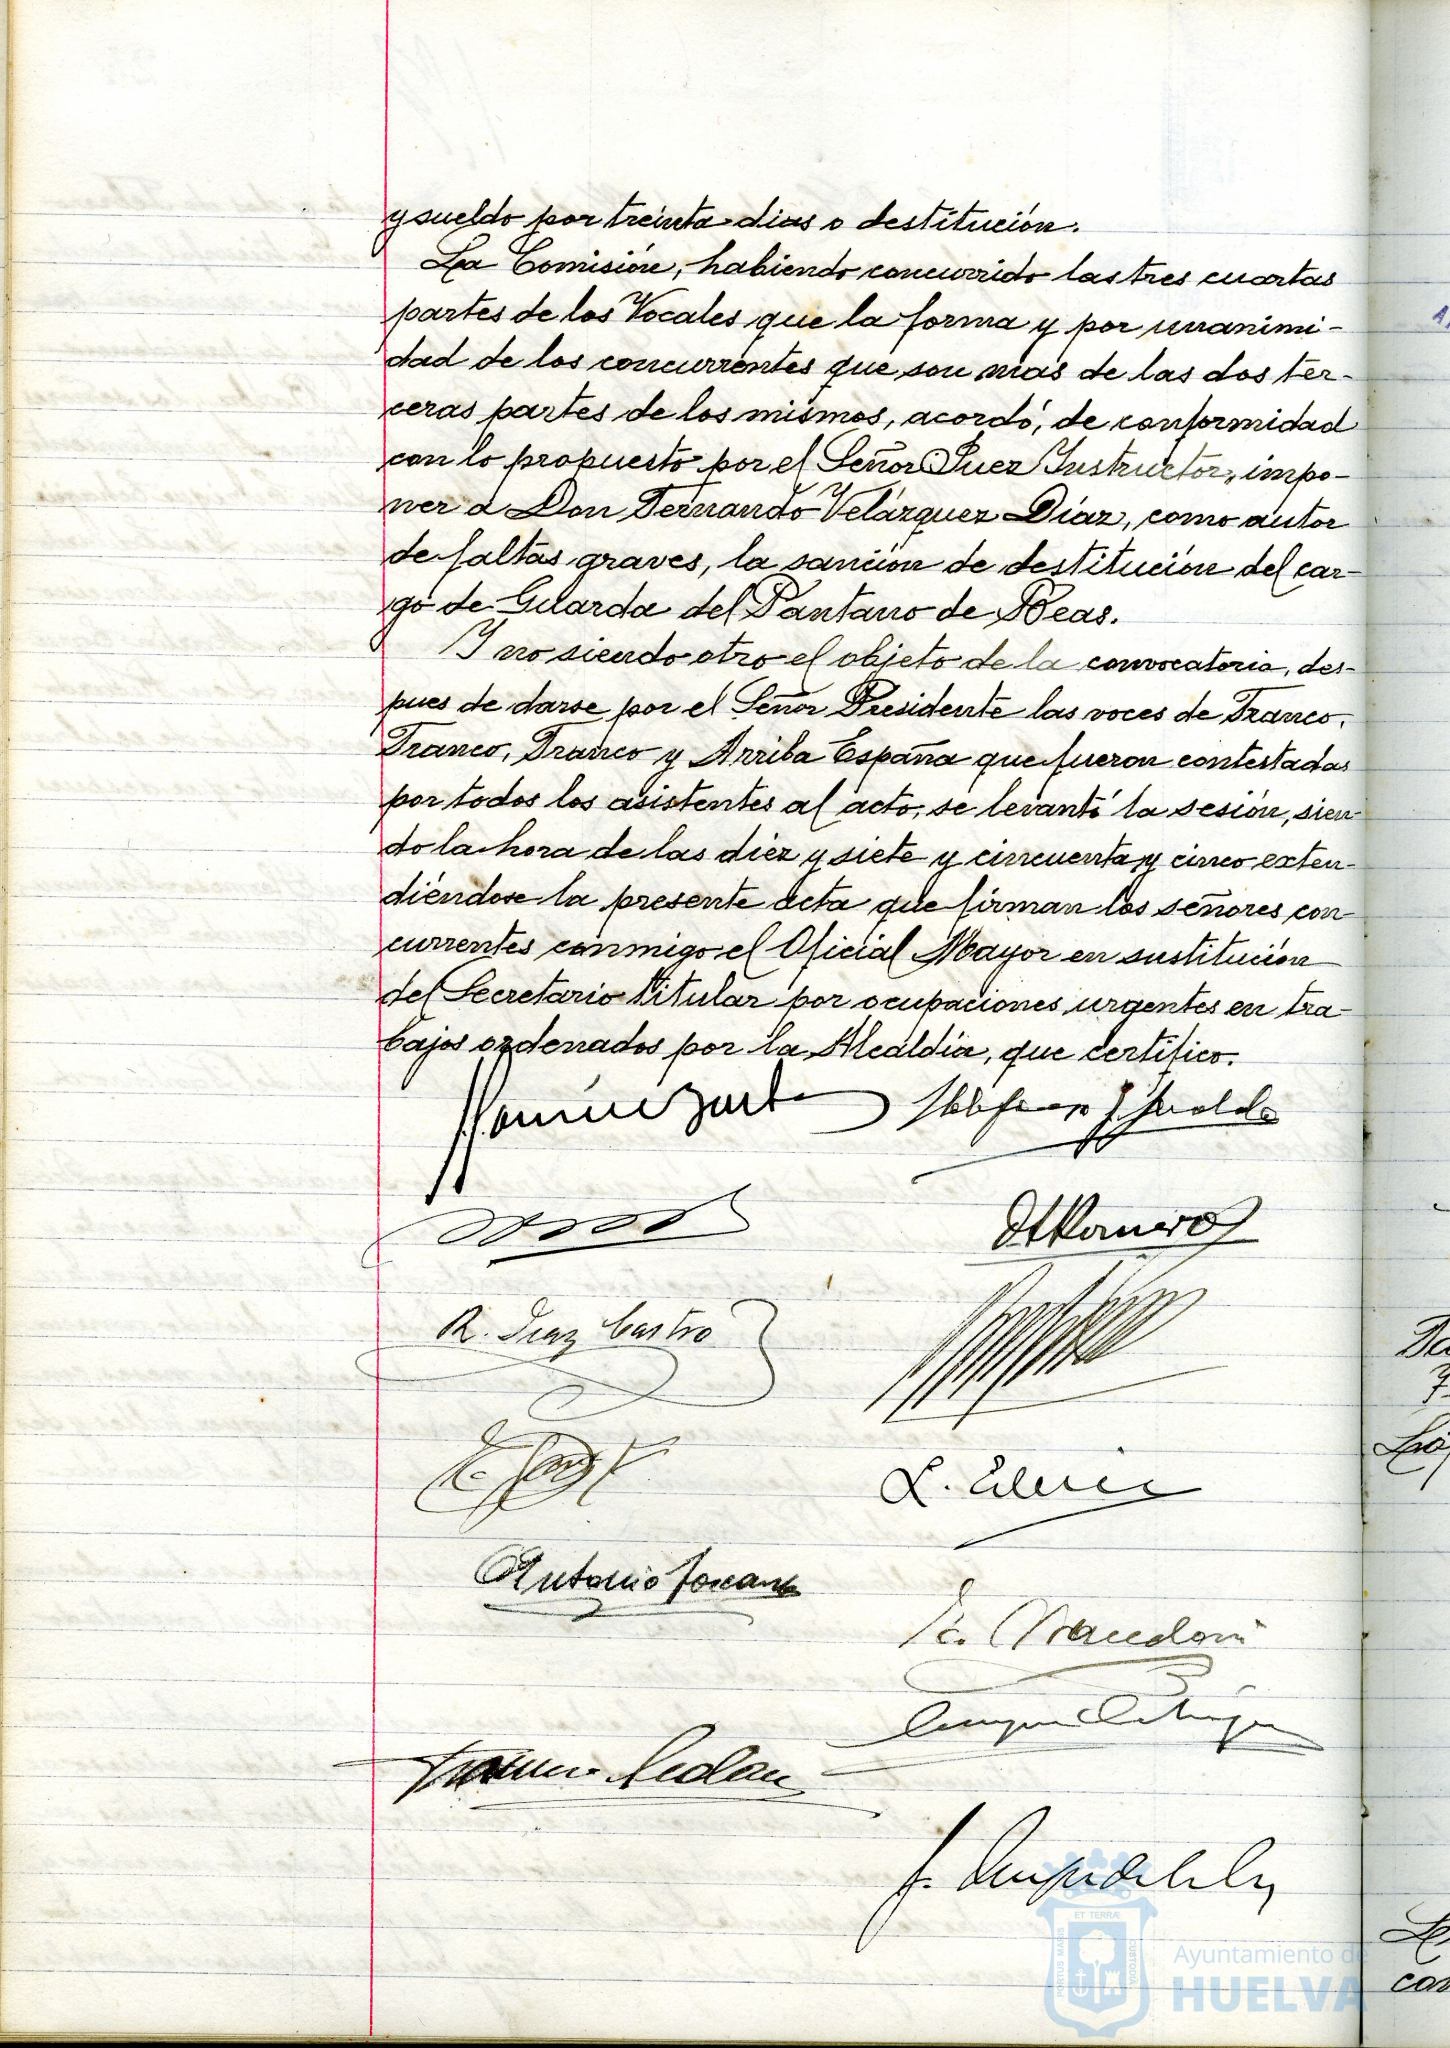 y sueldo por treinta dias o destitución.
La Comisión, habiendo concurrido las tres cuartas
partes de los Vocales que la forma y por unanimi-
dad de los concurrentes que son mas de las dos ter-
ceras partes de los mismos, acordó, de conformidad
con lo propuesto por el Señor Juez Instructor, impo-
ner a Don Fernando Velázquez Díaz, como autor
de faltas graves, la sanción de destitución del car-
go de Guarda del Pantano de Beas.
Y no siendo otro el objeto de la convocatoria, des-
pues de darse por el Señor Presidente las voces de Franco,
Franco, Franco y Arriba España que fueron contestadas
por todos los asistentes al acto, se levantó la sesión, sien-
do la hora de las diez y siete y cincuenta y cinco exten-
diéndose la presente acta que firman los señores con
currentes conmigo el Oficial Mayor en sustitución
del Secretario titular por ocupaciones urgentes en tra-
bajos ordenados por la Alcaldía, que certifico.
Romero
R. Diaz Castro
Antonio Toscano
PORTUS MARIS ET TERRÆ CUSTODIA
Ayuntamiento de
HUELVA